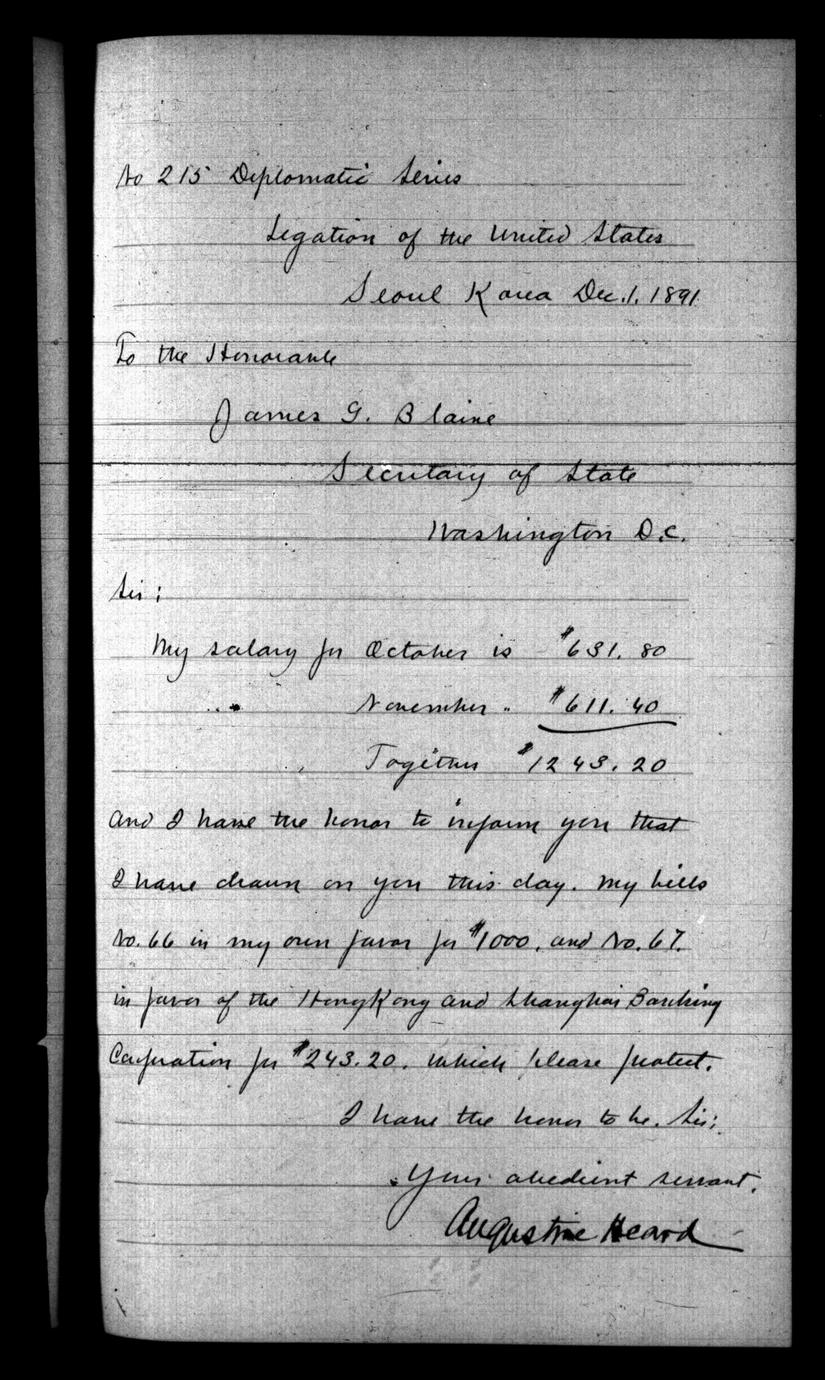 No 215 Diplomatic Series
Legation of the United States
Seoul Korea Dec. 1. 1891
To the Honorable
James G. Blaine
Secretary of State
Washington D.C.
Sir:
My salary for October is $631.80
" November " $611.40
Together $1243.20
and I have the honor to inform you that
I have drawn on you this day. My bills
No. 66 in my own favor for $1000. and No. 67.
in favor of the HongKong and Shanghai Banking
Corporation for $243.20. which please protect.
I have the honor to be. Sir;
Your obedient servant.
Augustine Heard